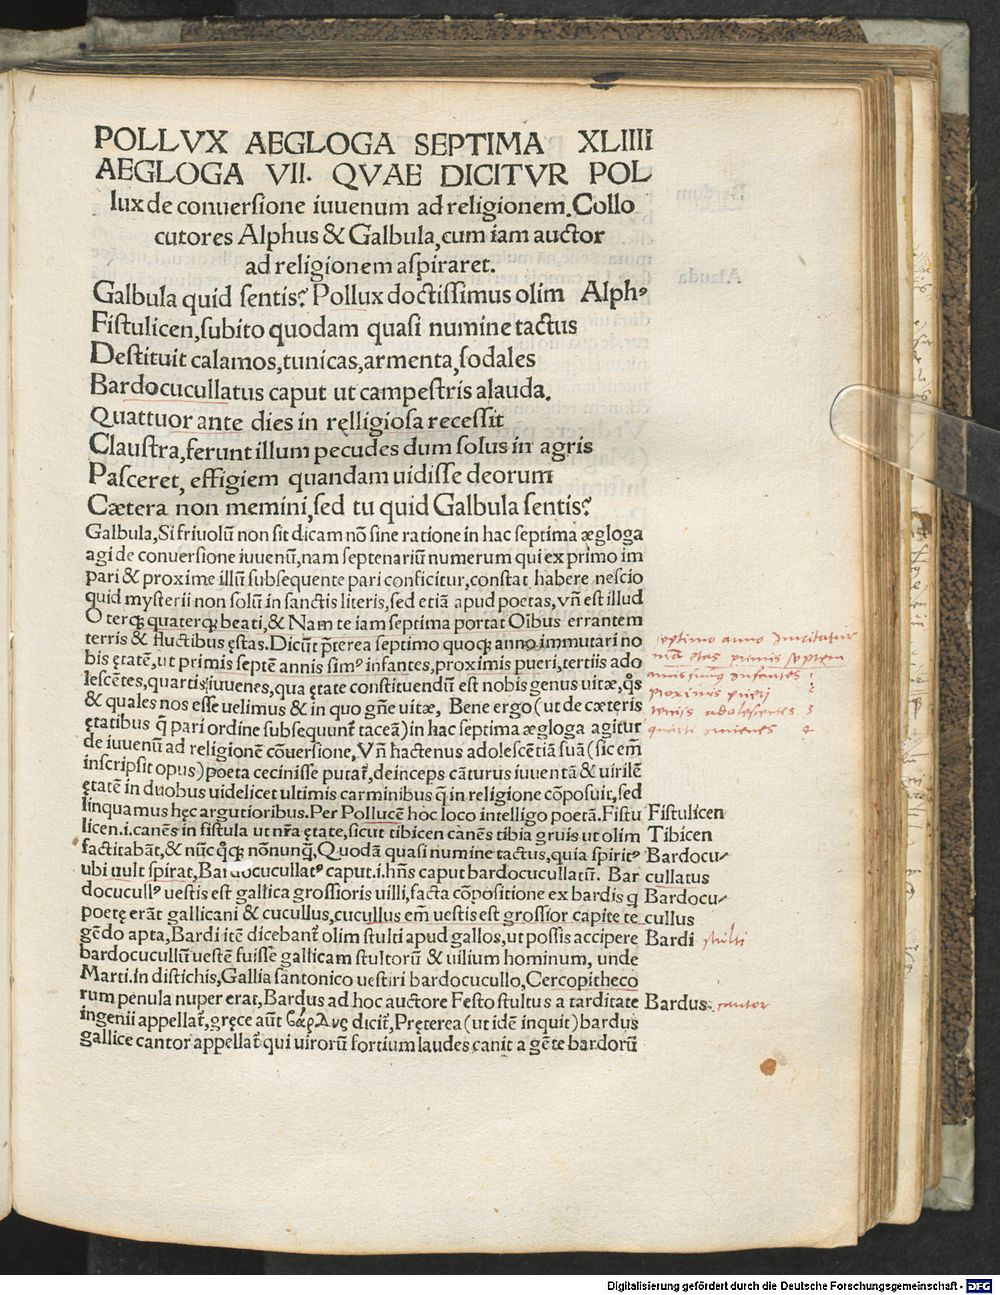 POLLVX AEGLOGA SEPTIMA XLIIII
AEGLOGA VII. QVAE DICITVR POL
lux de conuersione iuuenum ad religionem. Collo
cutores Alphus & Galbula, cum iam auctor
ad religionem aspiraret.
Galbula quid sentis? Pollux doctissimus olim Alphꝰ
Fistulicen, subito quodam quasi numine tactus
Destituit calamos, tunicas, armenta, sodales
Bardocucullatus caput ut campestris alauda.
Quattuor ante dies in ręlligiosa recessit
Claustra, ferunt illum pecudes dum solus in agris
Pasceret, effigiem quandam uidisse deorum
Cætera non memini, sed tu quid Galbula sentis?
Galbula, Si friuolū non sit dicam nō sine ratione in hac septima ægloga
agi de conuersione iuuenū, nam septenariū numerum qui ex primo im
pari & proxime illū subsequente pari conficitur, constat habere nescio
quid mysterii non solū in sanctis literis, sed etiā apud poetas, vñ est illud
O terqꝫ quaterqꝫ beati, & Nam te iam septima portat Oibus errantem
terris & fluctibus ęstas. Dicūt p̄terea septimo quoqꝫ anno immutari no
bis ętatē, ut primis septē annis simꝰ infantes, proximis pueri, tertiis ado
lescētes, quartis iuuenes, qua ętate constituendū est nobis genus uitæ, q̊s
& quales nos esse uelimus & in quo gñe uitæ, Bene ergo (ut de cæteris
ętatibus q̄ pari ordine subsequunt᷑ taceā) in hac septima ægloga agitur
de iuuenū ad religionē cōuersione, Vñ hactenus adolescētiā suā (sic em̄
inscripsit opus) poeta cecinisse putat᷑, deinceps cāturus iuuentā & virilē
ętatē in duobus uidelicet ultimis carminibus q̄ in religione cōposuit, sed
linquamus hęc argutioribus. Per Pollucē hoc loco intelligo poetā. Fistu Fistulicen
licen .i. canēs in fistula ut nr̄a ętate, sicut tibicen canēs tibia gruis ut olim Tibicen
factitabāt, & nūc q̊qꝫ nōnunq̄, Quodā quasi numine tactus, quia spiritꝰ Bardocu
ubi uult spirat, Bardocucullatꝰ caput .i. hñs caput bardocucullatū. Bar cullatus
docucullꝰ uestis est gallica grossioris uilli, facta cōpositione ex bardis q Bardocu
poetę erāt gallicani & cucullus, cucullus em̄ uestis est grossior capite te cullus
gēdo apta, Bardi itē dicebant᷑ olim stulti apud gallos, ut possis accipere Bardi stulti
bardocucullū uestē fuisse gallicam stultorū & uilium hominum, unde
Marti. in distichis, Gallia santonico uestiri bardocucullo, Cercopitheco
rum penula nuper erat, Bardus ad hoc auctore Festo stultus a tarditate Bardus. cantor
ingenii appellat᷑, gręce aūt dicit᷑, Pręterea (ut idē inquit) bardus
gallice cantor appellat᷑ qui uirorū fortium laudes canit a gēte bardorū
septimo anno
ętas primis septem
annis infantes
proximis pueri
tertiis adolescentes 3
quarti iuuenes 4
Digitalisierung gefördert durch die Deutsche Forschungsgemeinschaft - DFG